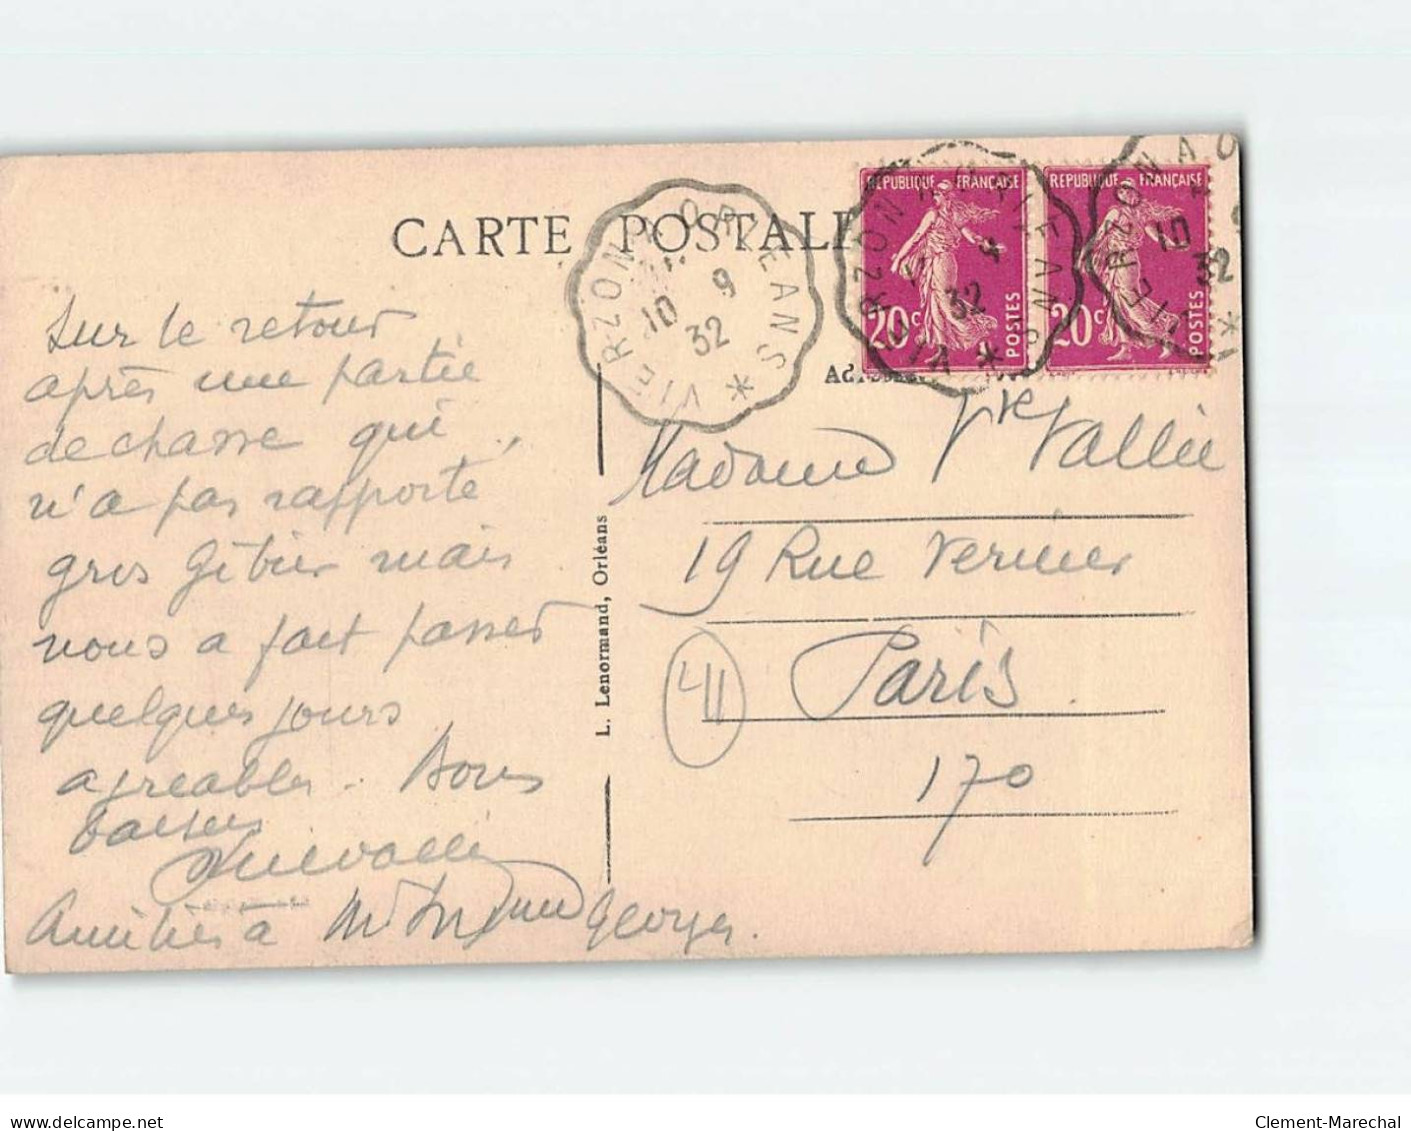 CARTE POSTALE
VIERZON A ORLEANS *
10 9
32
RÉPUBLIQUE FRANÇAISE
20c POSTES
RÉPUBLIQUE FRANÇAISE
20c POSTES
VIERZON A ORLEANS *
32
VIERZON A O
10
32
Sur le retour
après une partie
de chasse qui
n'a pas rapporté
gros gibier mais
nous a fait passer
quelques jours
agréables. Bons
baisers
Amitiés à
Georges.
L. Lenormand, Orléans
Madame Vve Vallée
19 Rue Vernier
Paris
170
delcampe.net
Clement-Marechal